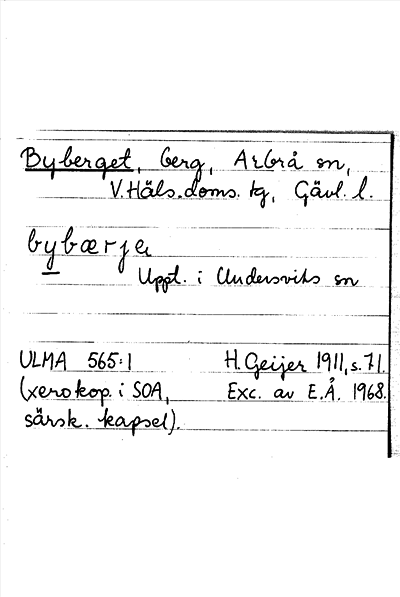 Byberget, berg, Arbrå sn,
V. Häls. doms. tg, Gävl. l.
bybærjɐ
Uppt. i Undersviks sn
ULMA 565:1 H. Geijer 1911, s. 71.
(xerokop. i SOA, Exc. av E.Å. 1968.
särsk. kapsel).